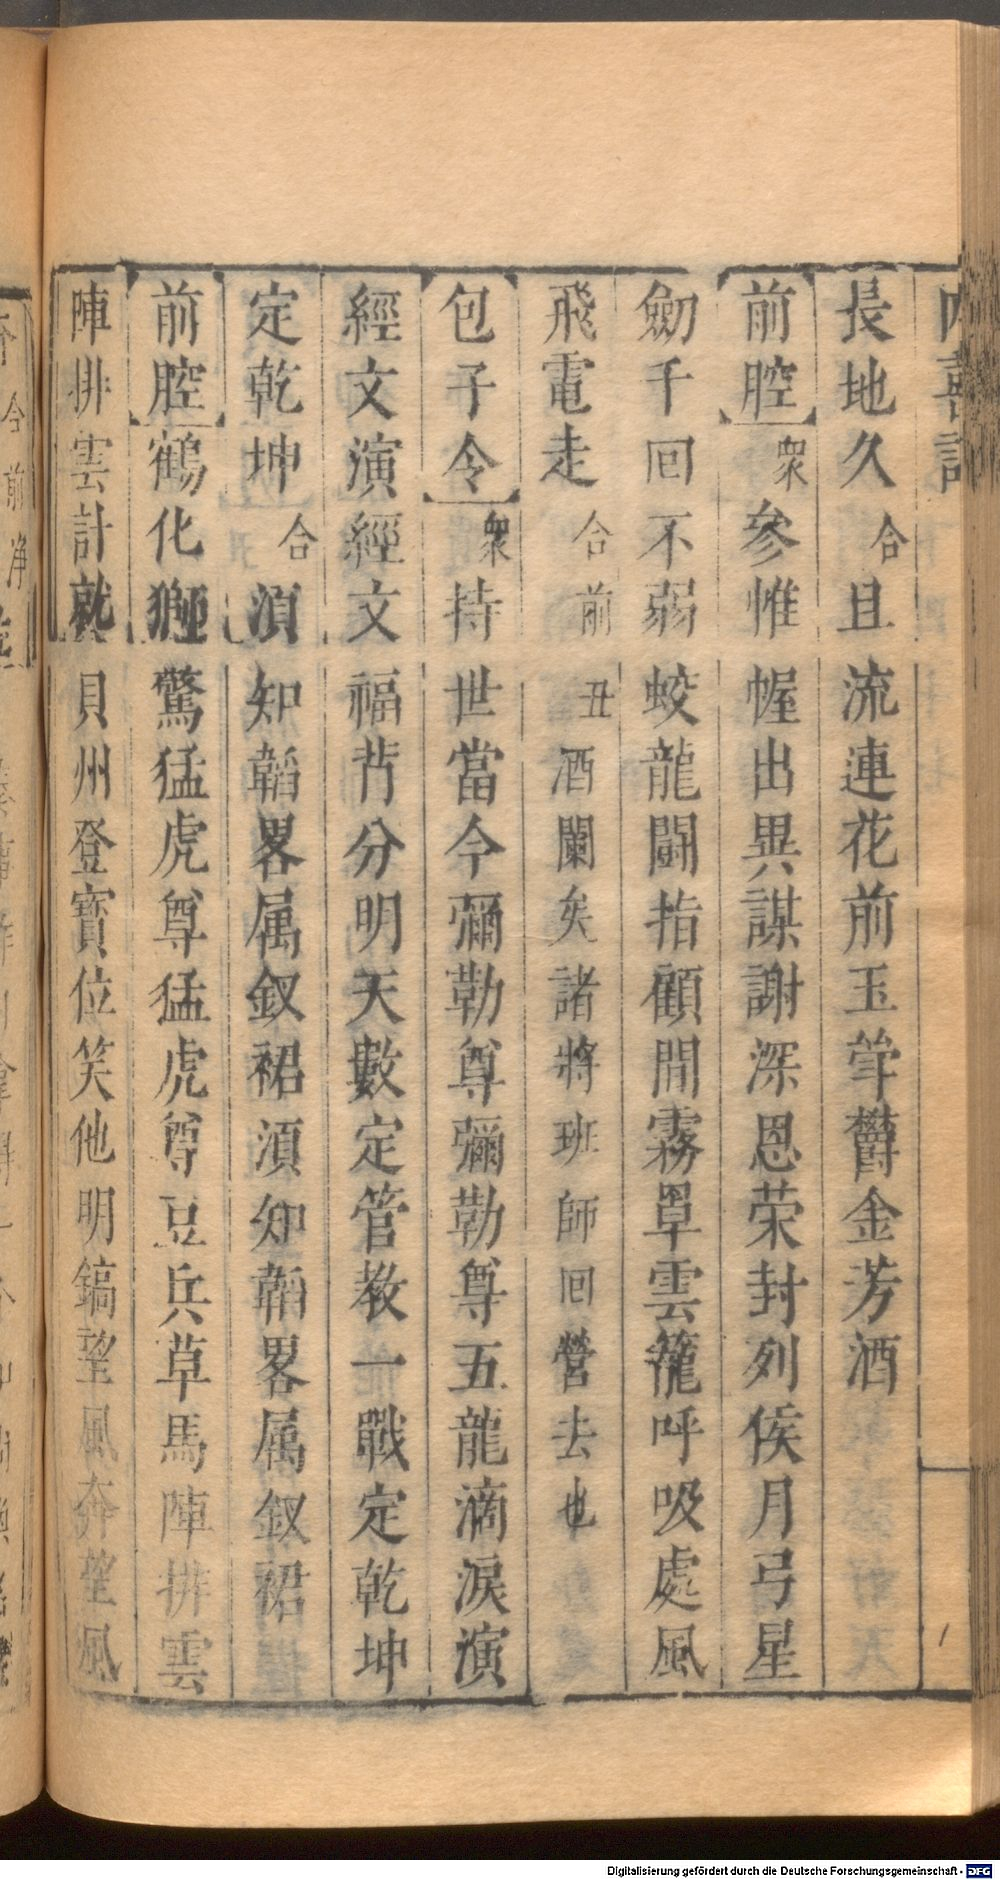 長地久合且流連花前玉筝欎金芳酒
前腔衆參惟幄出異謀謝深恩荣封列侯月弓星
劒千回不弱蛟龍鬬指顧間霧罩雲籠呼吸處風
飛電走合前丑酒闌矣諸將班師回營去也
包子令衆持世當今彌勒尊彌勒尊五龍滴淚演
經文演經文福背分明天數定管教一戰定乾坤
定乾坤合湏知韜畧属釵裙湏知韜畧属釵裙
前腔鶴化獅驚猛虎尊猛虎尊豆兵草馬陣排雲
陣排雲計就貝州登寳位笑他明鎬望風奔望風
Digitalisierung gefördert durch die Deutsche Forschungsgemeinschaft - DFG